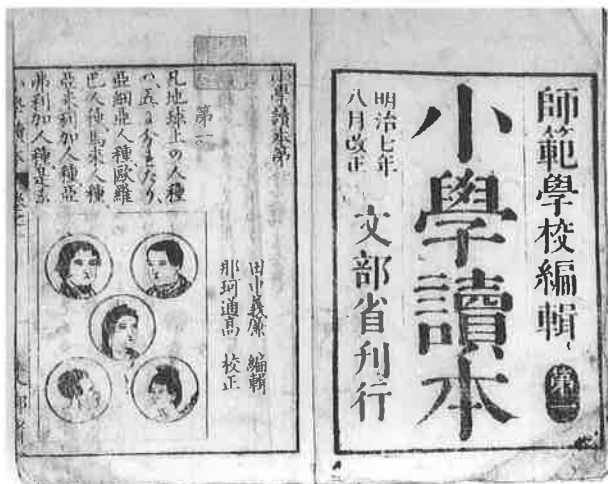 師範學校編輯
第一
小學讀本
明治七年
八月改正
文部省刊行
小學讀本第
田中義廉 編輯
那珂通高 校正
第一
凡地球上の人種
ハ、五つに分れたり、
亞細亞人種、歐羅
巴人種、馬來人種、
亞米利加人種、亞
弗利加人種、是